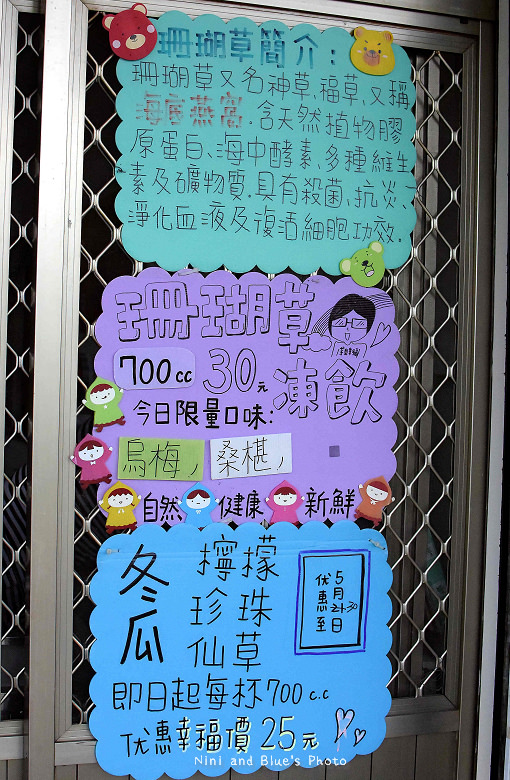 珊瑚草簡介：
珊瑚草又名神草、福草、又稱
海底燕窩．含天然植物膠
原蛋白、海中酵素、多種維生
素及礦物質．具有殺菌、抗炎、
淨化血液及復活細胞功效．
珊瑚草
700cc 30元 凍飲
今日限量口味：
烏梅， 桑椹，
自然 健康 新鮮
冬瓜
檸檬
珍珠
仙草
优惠至
5月21-30日
即日起每杯700c.c
优惠幸福價25元
Nini and Blue's Photo